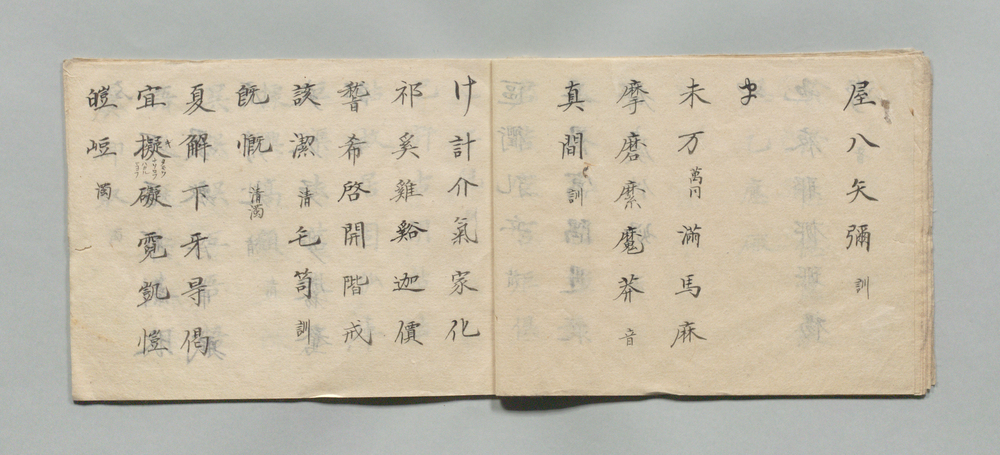 屋八矢彌訓
ま
未万萬同滿馬麻
摩磨縻魔莽音
真間訓
け計介氣家化
祁奚雞谿迦價
䭫希啓開階戒
該潔清毛笥訓
既慨清濁
夏解下牙导偈
宜擬礙霓凱愷
皚嵦濁